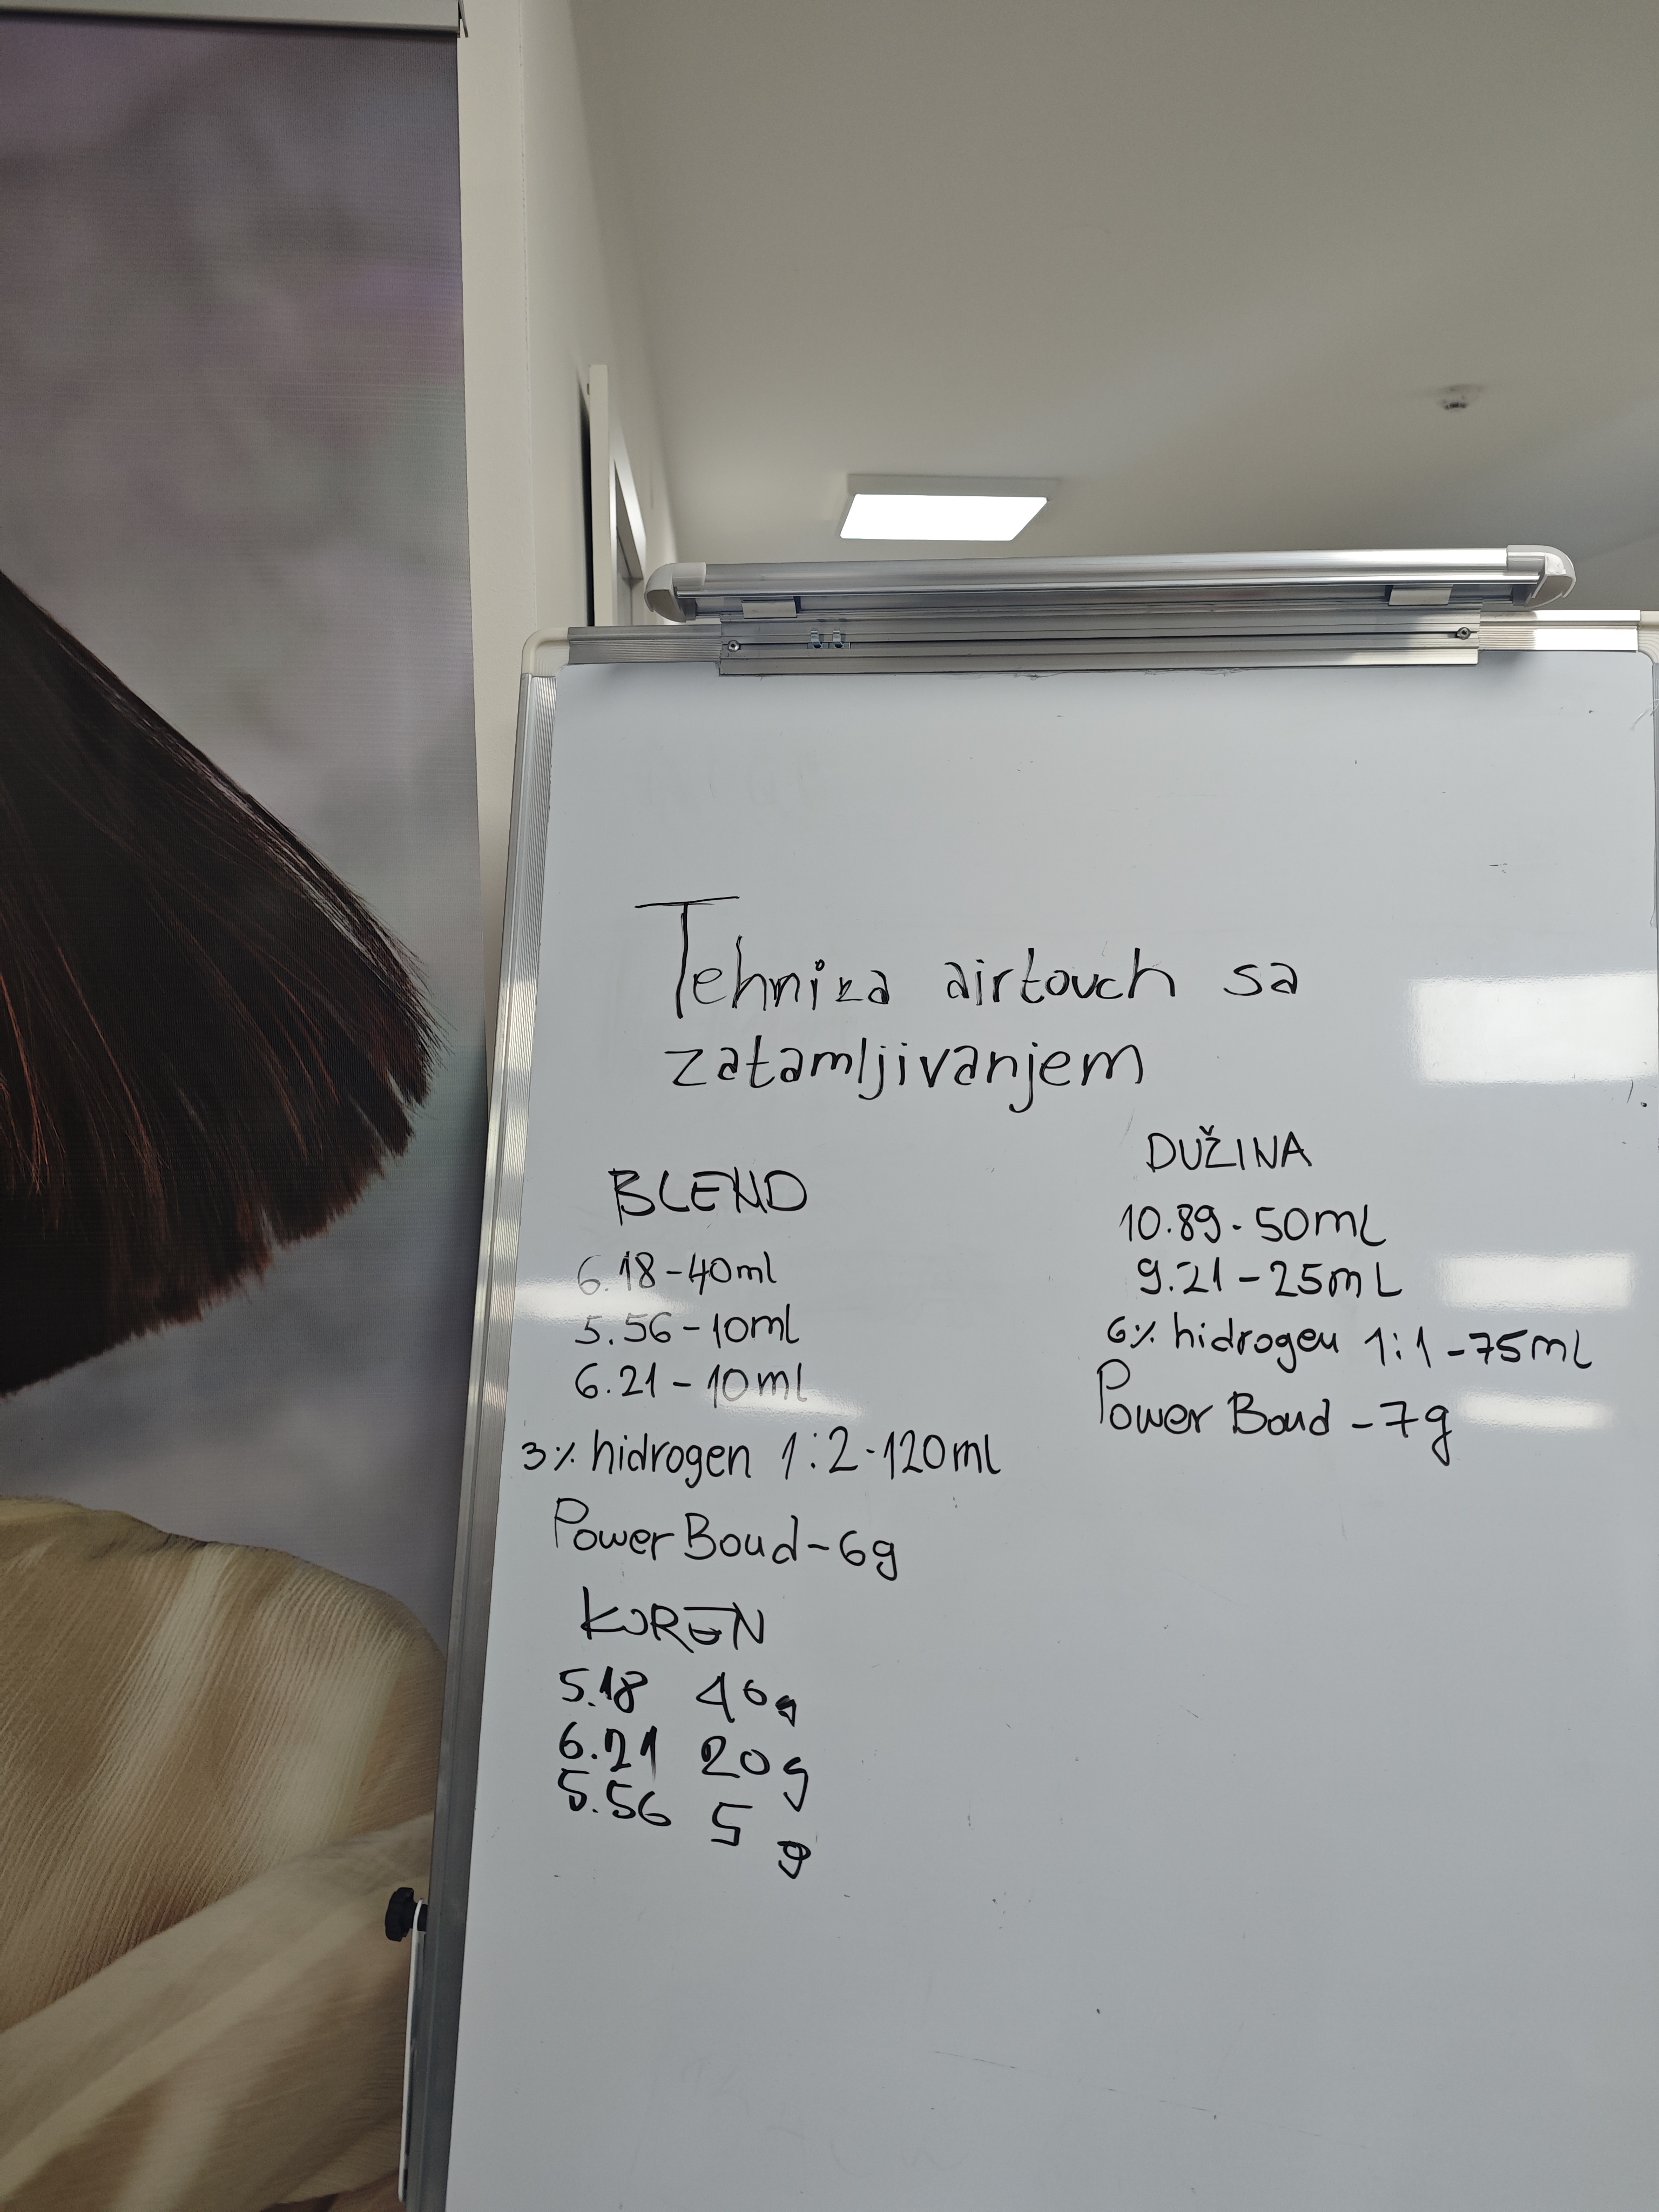 Tehnika airtouch sa
zatamljivanjem
BLEND
6.18-40ml
5.56-10ml
6.21-10ml
3% hidrogen 1:2-120ml
Power Bond-6g
KOREN
5.18 40g
6.21 20g
5.56 5 g
DUŽINA
10.89-50ml
9.21-25mL
6% hidrogen 1:1-75ml
Power Bond-7g